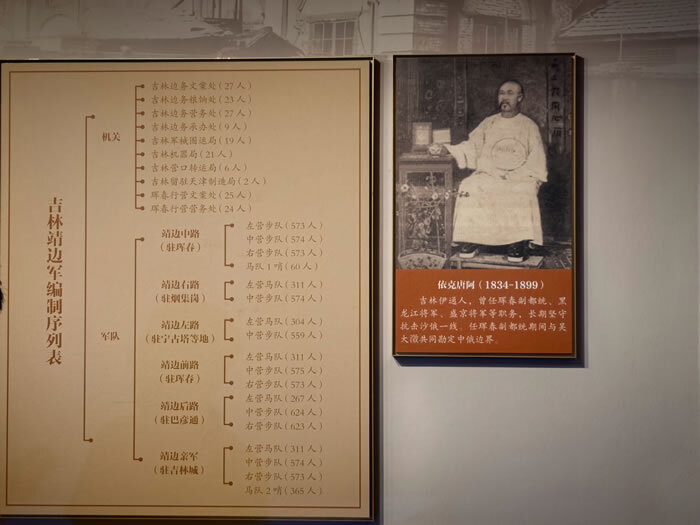 吉林靖边军编制序列表
机关
吉林边务文案处(27人)
吉林边务粮饷处(23人)
吉林边务营务处(27人)
吉林边务承办处(9人)
吉林军械图运局(19人)
吉林机器局(21人)
吉林营口转运局(6人)
吉林留驻天津制造局(2人)
珲春行营文案处(25人)
珲春行营营务处(24人)
军队
靖边中路
(驻珲春)
左营步队(573人)
中营步队(574人)
右营步队(573人)
马队1哨(60人)
靖边右路
(驻烟集岗)
左营马队(311人)
中营步队(574人)
靖边左路
(驻宁古塔等地)
左营马队(304人)
中营步队(559人)
靖边前路
(驻珲春)
左营马队(311人)
中营步队(575人)
右营步队(573人)
靖边后路
(驻巴彦通)
左营马队(267人)
中营步队(624人)
右营步队(623人)
靖边亲军
(驻吉林城)
左营马队(311人)
中营步队(574人)
右营步队(573人)
马队2哨(365人)
依克唐阿(1834-1899)
吉林伊通人，曾任珲春副都统、黑
龙江将军、盛京将军等职务，长期坚守
抗击沙俄一线。任珲春副都统期间与吴
大澂共同勘定中俄边界。